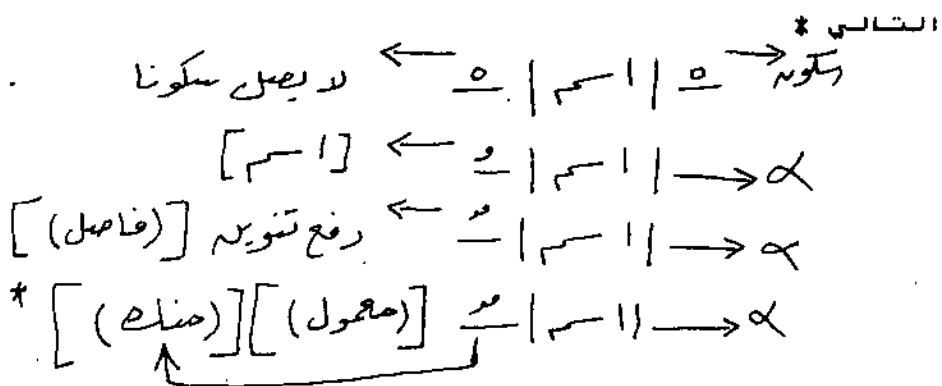 التالي *
سكون ← ْ | اسم | ْ ← لا يصل سكونا
α ← | اسم | ُ ← [اسم]
α ← | اسم | ٌ ← رفع تنوين [(فاصل)]
α ← | اسم | ٌ [(معمول)] [(منك)] *